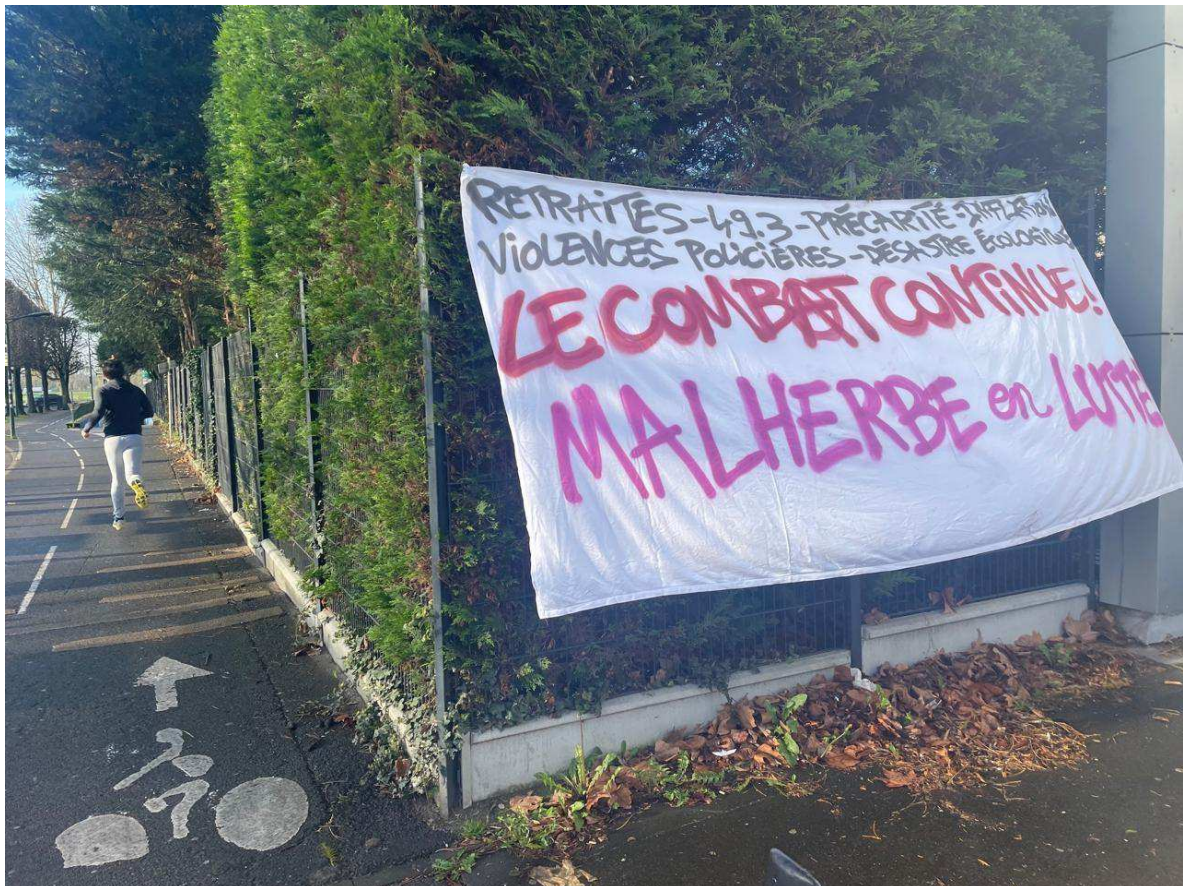 RETRAITES - 49.3 - PRÉCARITÉ - INFLATION
VIOLENCES POLICIÈRES - DÉSASTRE ÉCOLOGIQUE
LE COMBAT CONTINUE!
MALHERBE en LUTTE